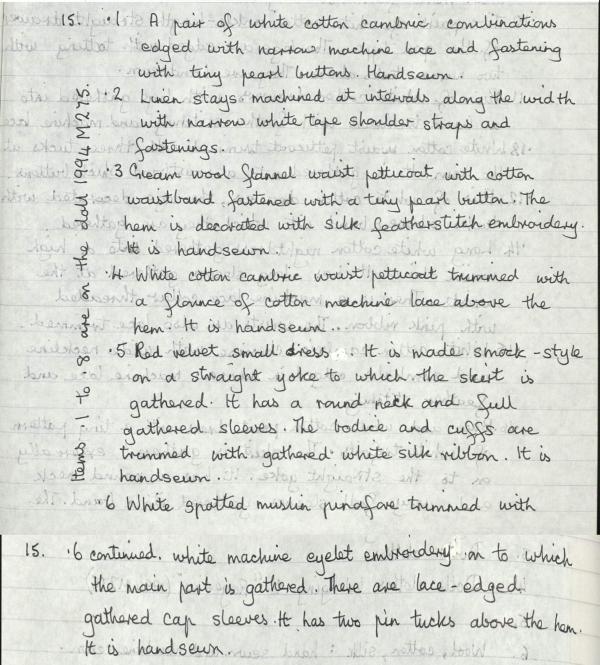 15. .1 A pair of white cotton cambric combinations
edged with narrow machine lace and fastening
with tiny pearl buttons. Handsewn.
.2 Linen stays machined at intervals along the width
with narrow white tape shoulder straps and
fastenings.
.3 Cream wool flannel waist petticoat with cotton
waistband fastened with a tiny pearl button. The
hem is decorated with silk featherstitch embroidery.
It is handsewn.
.4 White cotton cambric waist petticoat trimmed with
a flounce of cotton machine lace above the
hem. It is handsewn..
.5 Red velvet small dress. It is made smock-style
on a straight yoke to which the skirt is
gathered. It has a round neck and full
gathered sleeves. The bodice and cuffs are
trimmed with gathered white silk ribbon. It is
handsewn.
6 White spotted muslin pinafore trimmed with
Items 1 to 8 are on the doll 1994 M275.
15. .6 continued. white machine eyelet embroidery on to which
the main part is gathered. There are lace-edged
gathered cap sleeves. It has two pin tucks above the hem.
It is handsewn.